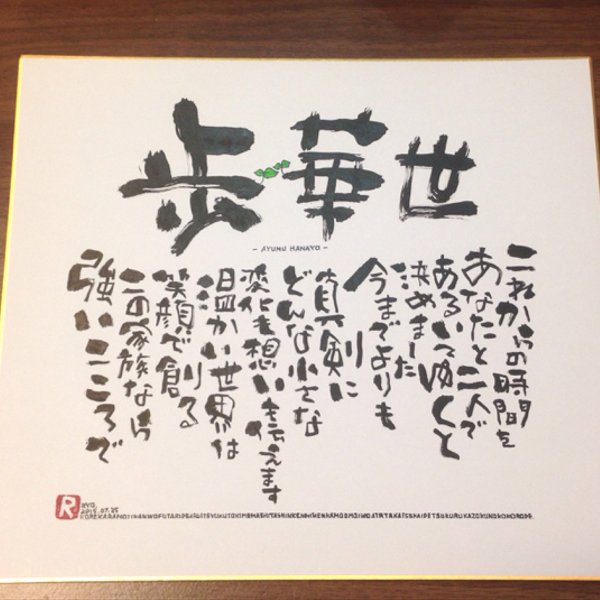 歩 華世
- AYUMU HANAYO -
これからの時間を
あなたと二人で
あるいてゆくと
決めました
今までよりも
真剣に
どんな小さな
変化も想い伝えます
温かい世界は
笑顔で創る
この家族なら
強いこころで
R
RYO.
2015.07.25